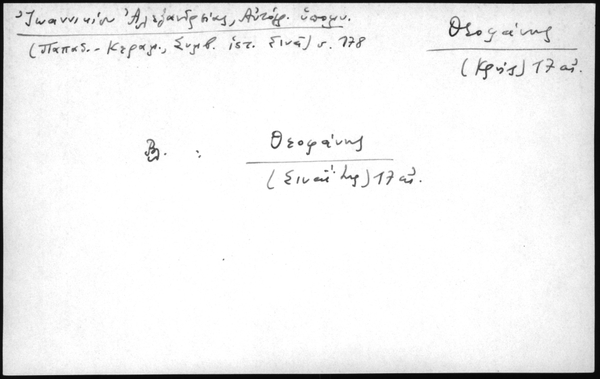 Ἰωαννικίου Ἀλεξανδρείας, Αὐτόγρ. ὑπόμν.
(Παπαδ.-Κεραμ., Συμβ. ἱστ. Σινᾶ) σ. 178
Θεοφάνης
(Κρής) 17 αἰ.
Βλ. : Θεοφάνης
(Σιναΐτης) 17 αἰ.